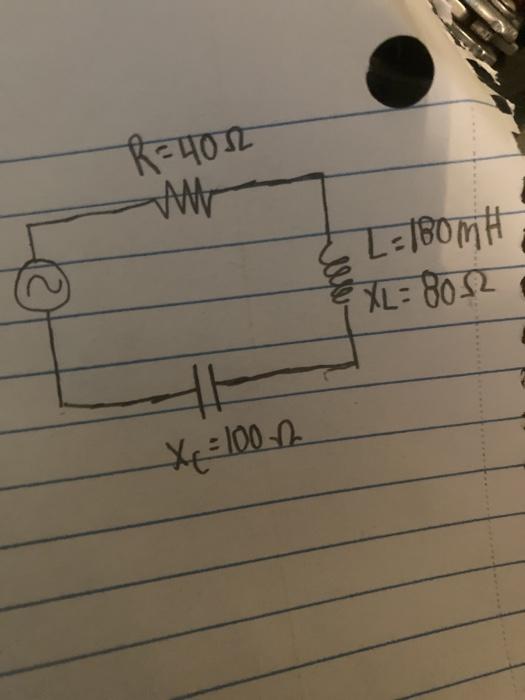 R=40Ω
L=180mH
XL=80Ω
Xc=100Ω